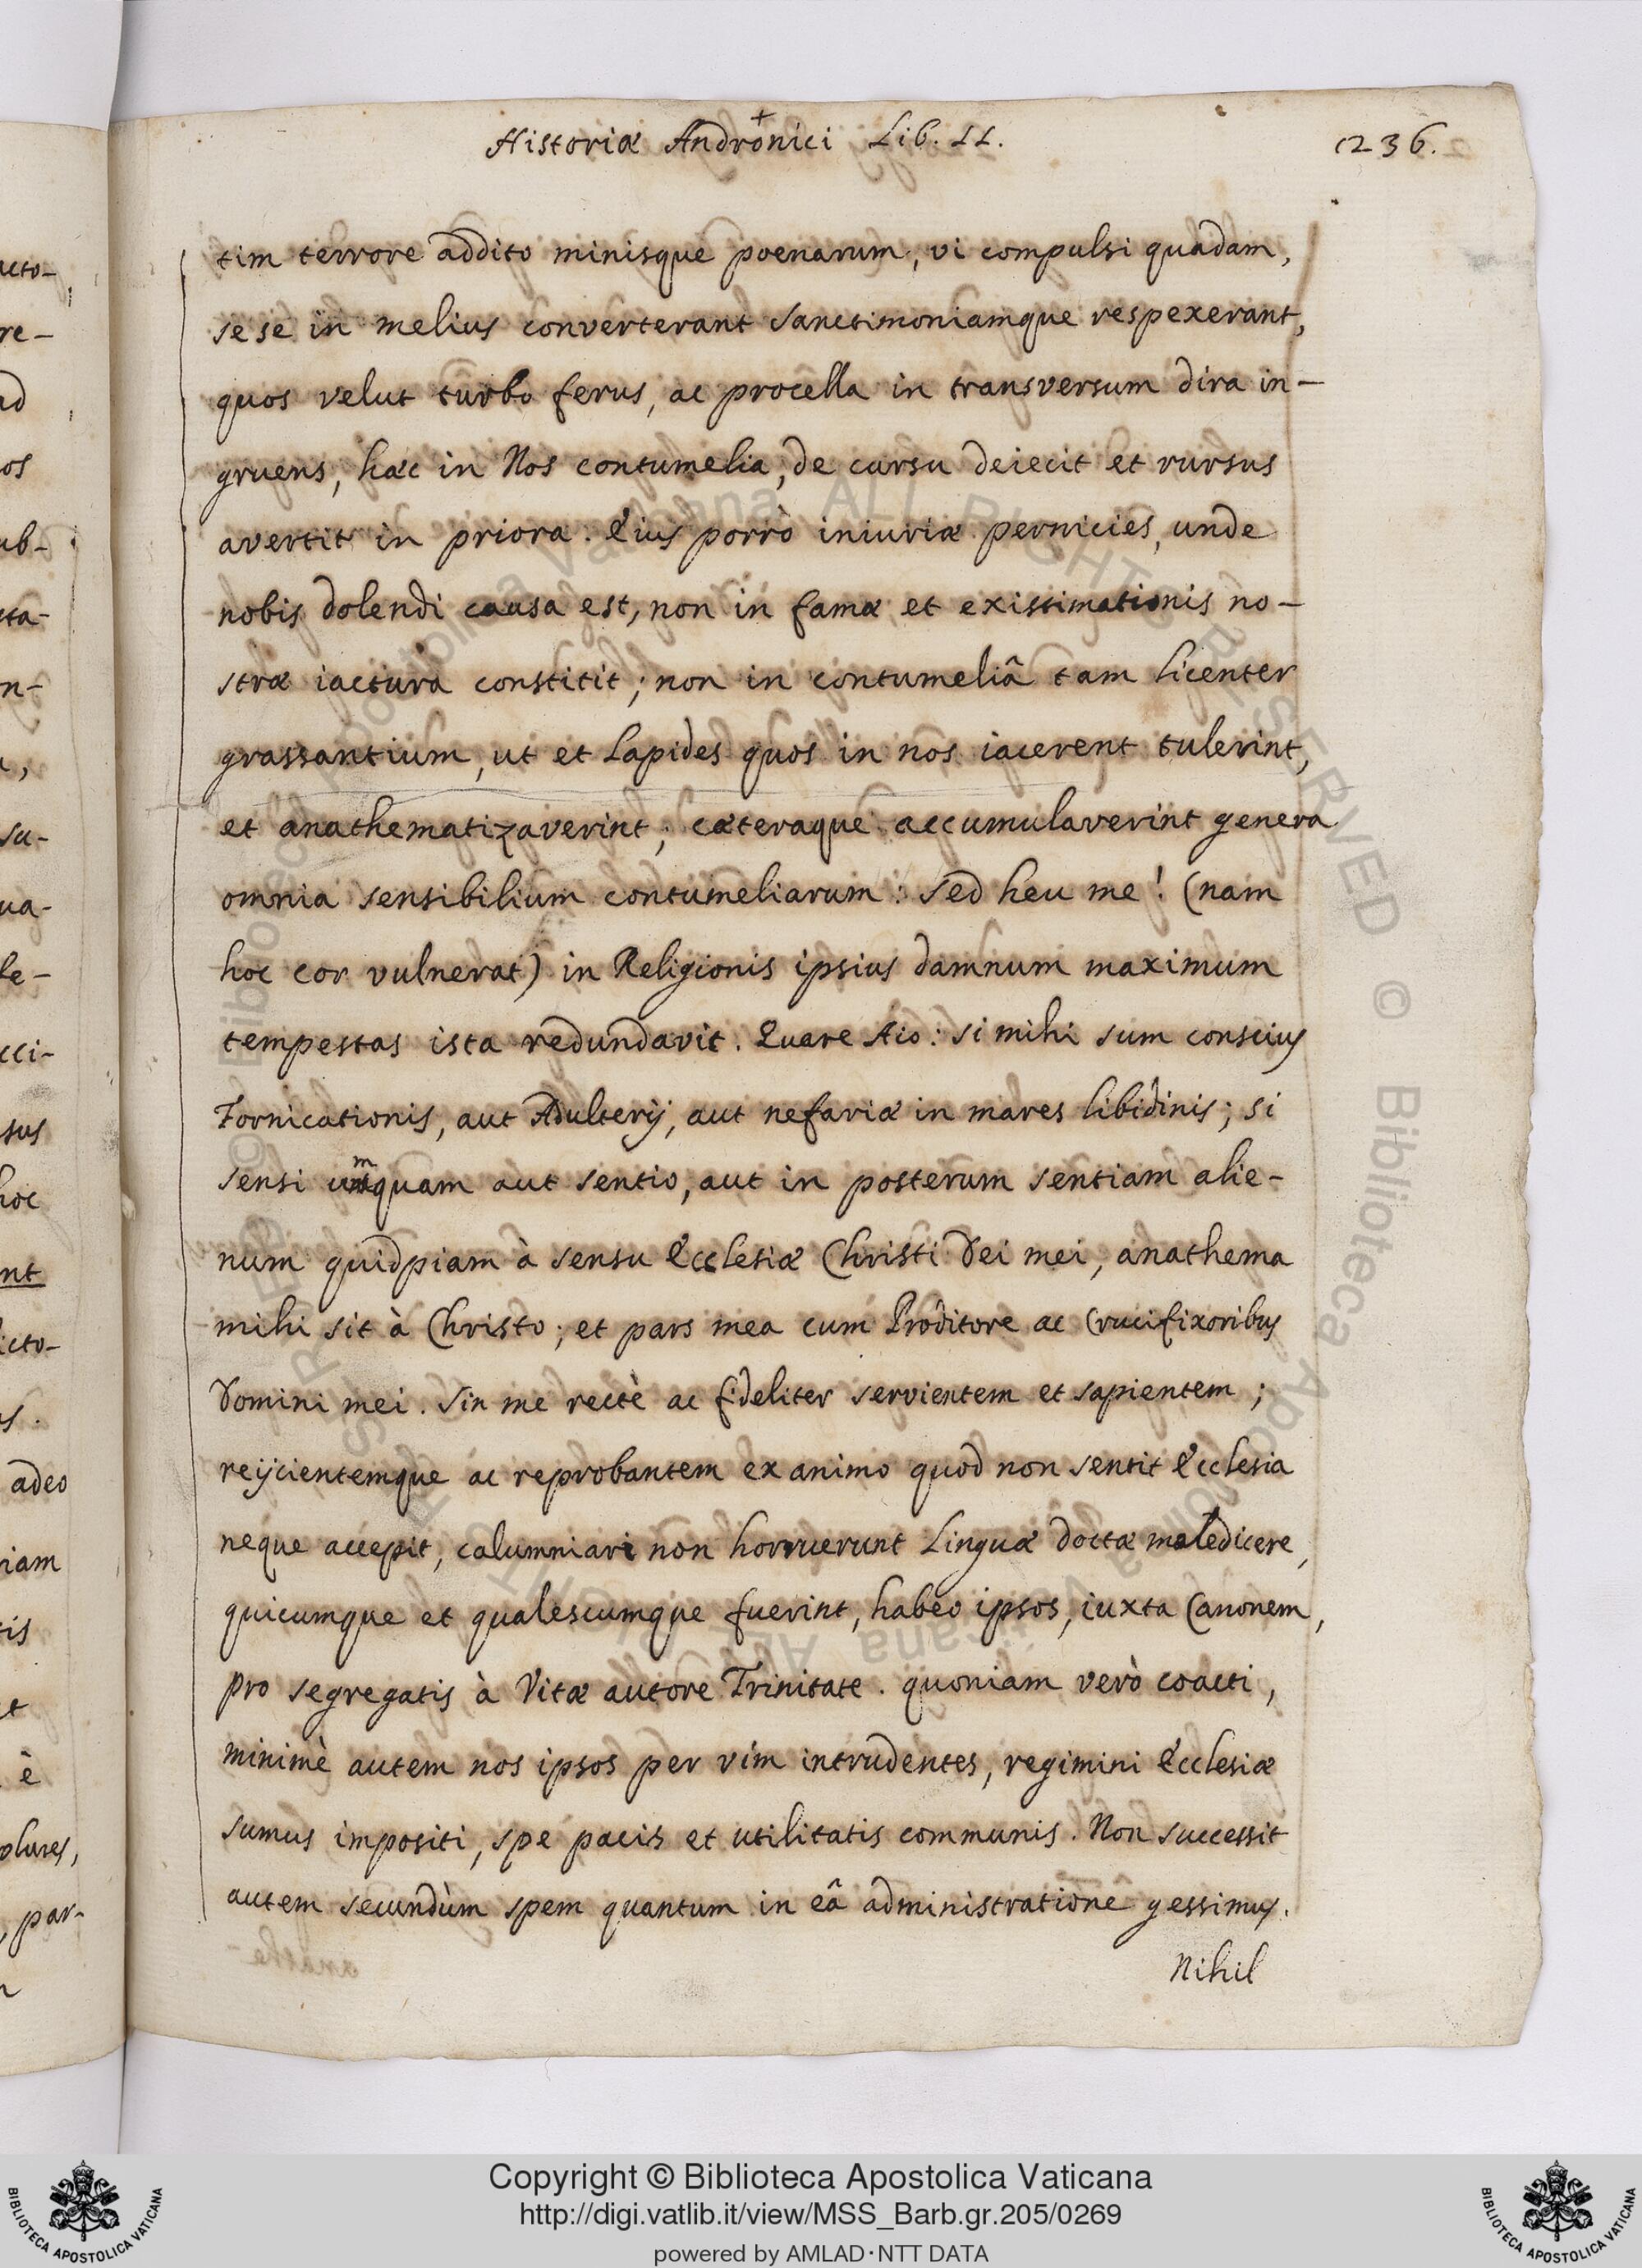 Historiæ Andronici Lib. II.
1236.
tim terrore addito minisque poenarum, vi compulsi quadam,
se se in melius converterant sanctimoniamque respexerant,
quos velut turbo ferus, ac procella in transversum dira in-
gruens, hæc in Nos contumelia, de cursu deiecit et rursus
avertit in priora. Eius porrò iniuriæ pernicies, unde
nobis dolendi causa est, non in famæ et existimationis no-
stræ iactura constitit; non in contumeliâ tam licenter
grassantium, ut et Lapides quos in nos iacerent tulerint,
et anathematizaverint; cæteraque accumulaverint genera
omnia sensibilium contumeliarum: sed heu me! (nam
hoc cor vulnerat) in Religionis ipsius damnum maximum
tempestas ista redundavit. Quare Aio: si mihi sum conscius
Fornicationis, aut Adulterij, aut nefariæ in mares libidinis; si
sensi umquam aut sentio, aut in posterum sentiam alie-
num quidpiam à sensu Ecclesiæ Christi Dei mei, anathema
mihi sit à Christo; et pars mea cum Proditore ac Crucifixoribus
Domini mei. Sin me rectè ac fideliter servientem et sapientem;
reijcientemque ac reprobantem ex animo quod non sentit Ecclesia
neque accepit, calumniari non horruerunt Linguæ doctæ maledicere,
quicumque et qualescumque fuerint, habeo ipsos, iuxta Canonem,
pro segregatis à Vitæ autore Trinitate. quoniam verò coacti,
minimè autem nos ipsos per vim intrudentes, regimini Ecclesiæ
sumus impositi, spe pacis et utilitatis communis. Non successit
autem secundùm spem quantum in eâ administratione gessimus.
Nihil
Copyright © Biblioteca Apostolica Vaticana
http://digi.vatlib.it/view/MSS_Barb.gr.205/0269
powered by AMLAD·NTT DATA